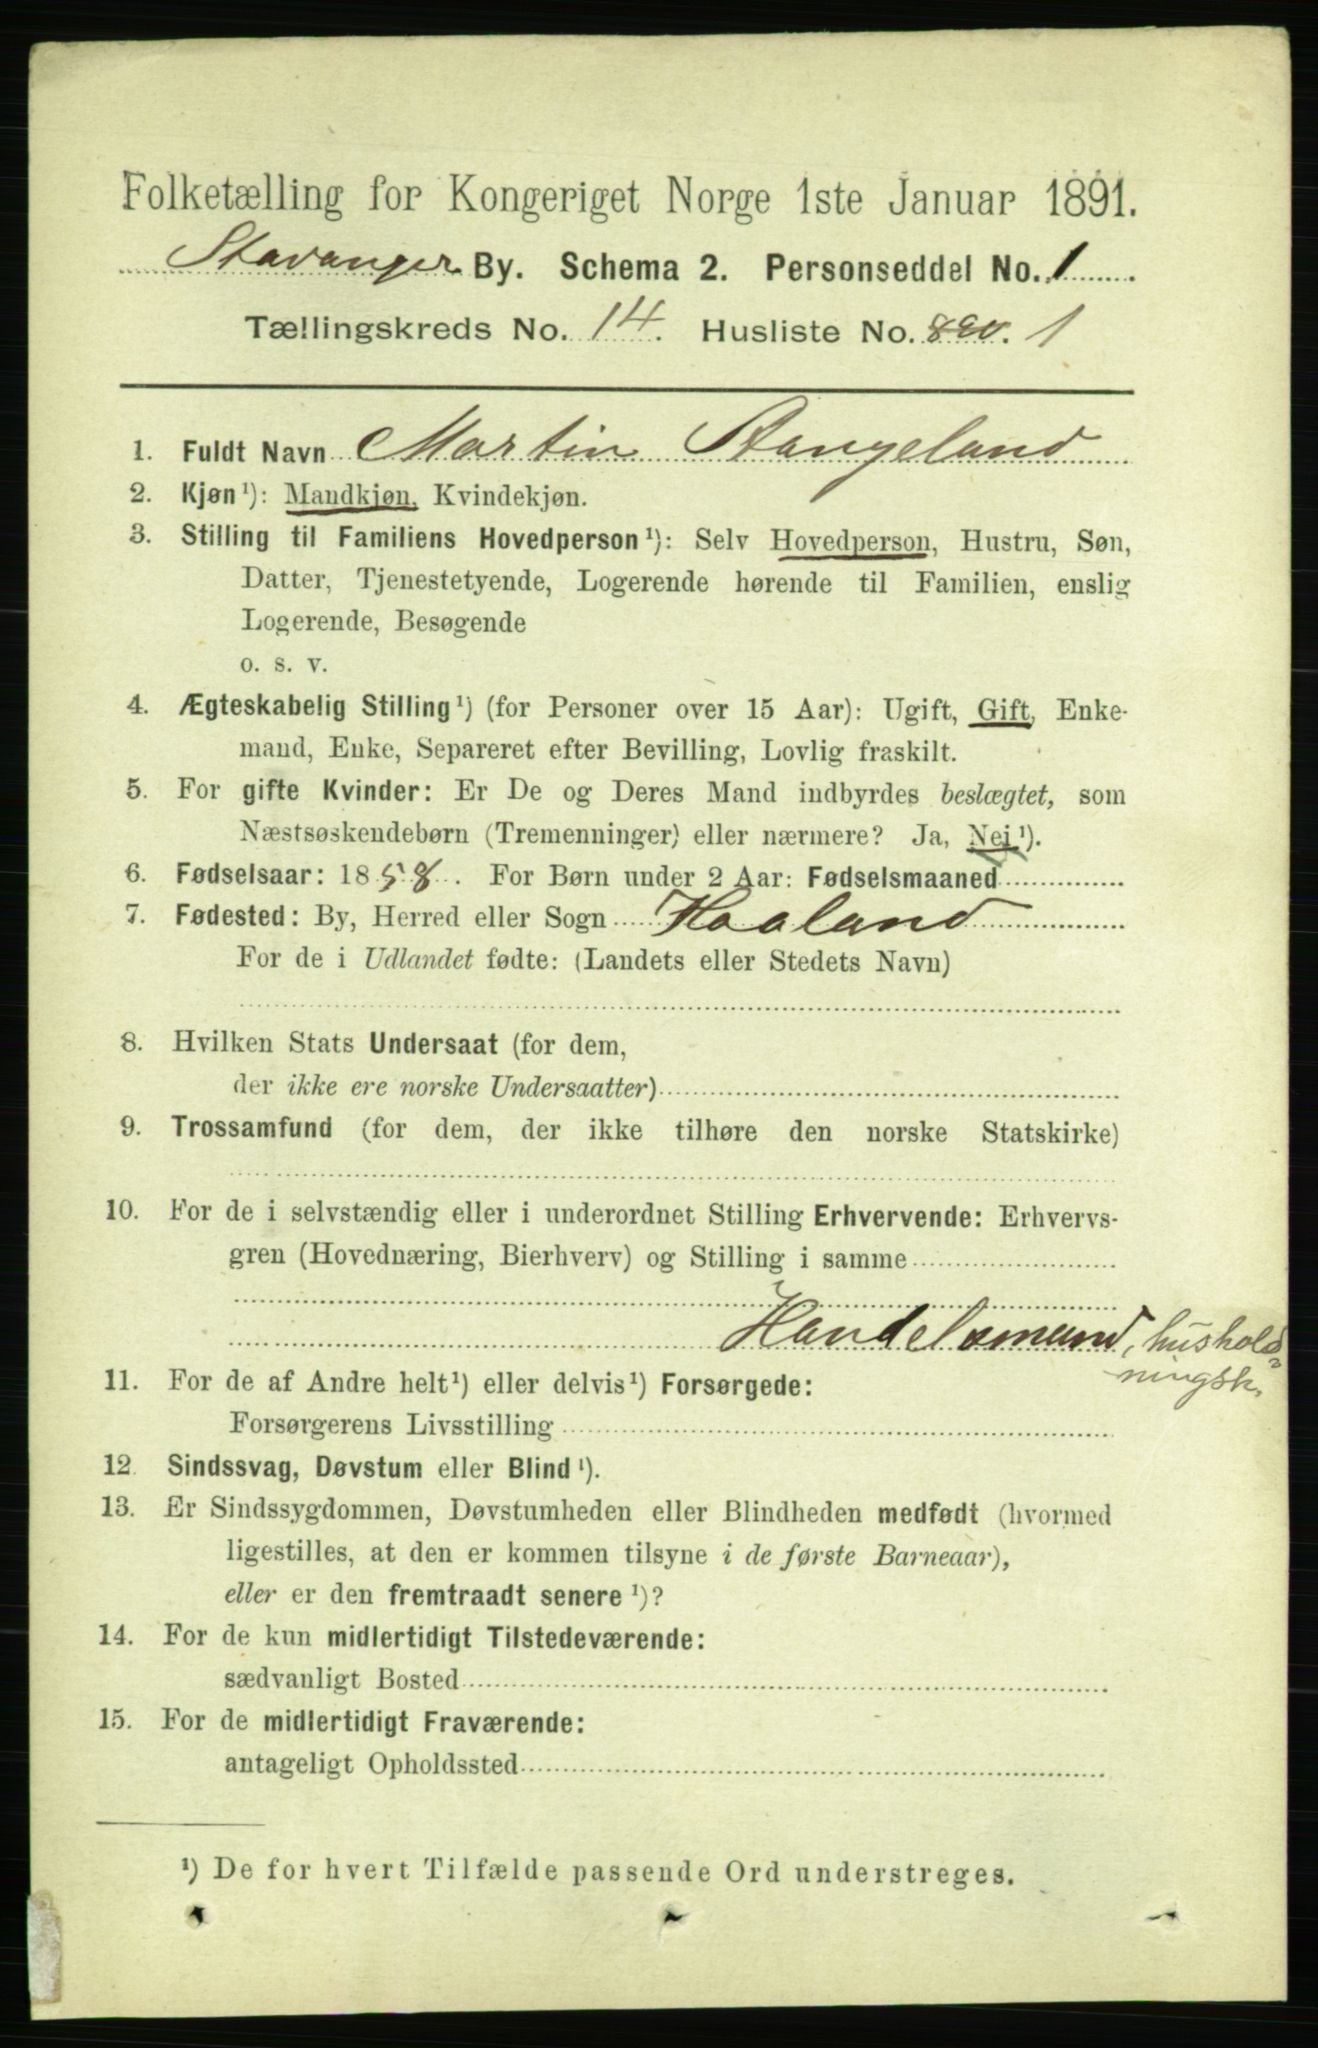 Folketælling for Kongeriget Norge 1ste Januar 1891.
Stavanger By. Schema 2. Personseddel No. 1
Tællingskreds No. 14. Husliste No. 890. 1
1. Fuldt Navn Martin Stangeland
2. Kjøn¹): Mandkjøn, Kvindekjøn.
3. Stilling til Familiens Hovedperson¹): Selv Hovedperson, Hustru, Søn,
Datter, Tjenestetyende, Logerende hørende til Familien, enslig
Logerende, Besøgende
o. s. v.
4. Ægteskabelig Stilling¹) (for Personer over 15 Aar): Ugift, Gift, Enke-
mand, Enke, Separeret efter Bevilling, Lovlig fraskilt.
5. For gifte Kvinder: Er De og Deres Mand indbyrdes beslægtet, som
Næstsøskendebørn (Tremenninger) eller nærmere? Ja, Nei¹).
6. Fødselsaar: 1858. For Børn under 2 Aar: Fødselsmaaned
7. Fødested: By, Herred eller Sogn Haaland
For de i Udlandet fødte: (Landets eller Stedets Navn)
8. Hvilken Stats Undersaat (for dem,
der ikke ere norske Undersaatter)
9. Trossamfund (for dem, der ikke tilhøre den norske Statskirke)
10. For de i selvstændig eller i underordnet Stilling Erhvervende: Erhvervs-
gren (Hovednæring, Bierhverv) og Stilling i samme
Handelsmand, hushold=
ningsh.
11. For de af Andre helt¹) eller delvis¹) Forsørgede:
Forsørgerens Livsstilling
12. Sindssvag, Døvstum eller Blind¹).
13. Er Sindssygdommen, Døvstumheden eller Blindheden medfødt (hvormed
ligestilles, at den er kommen tilsyne i de første Barneaar),
eller er den fremtraadt senere¹)?
14. For de kun midlertidigt Tilstedeværende:
sædvanligt Bosted
15. For de midlertidigt Fraværende:
antageligt Opholdssted
¹) De for hvert Tilfælde passende Ord understreges.